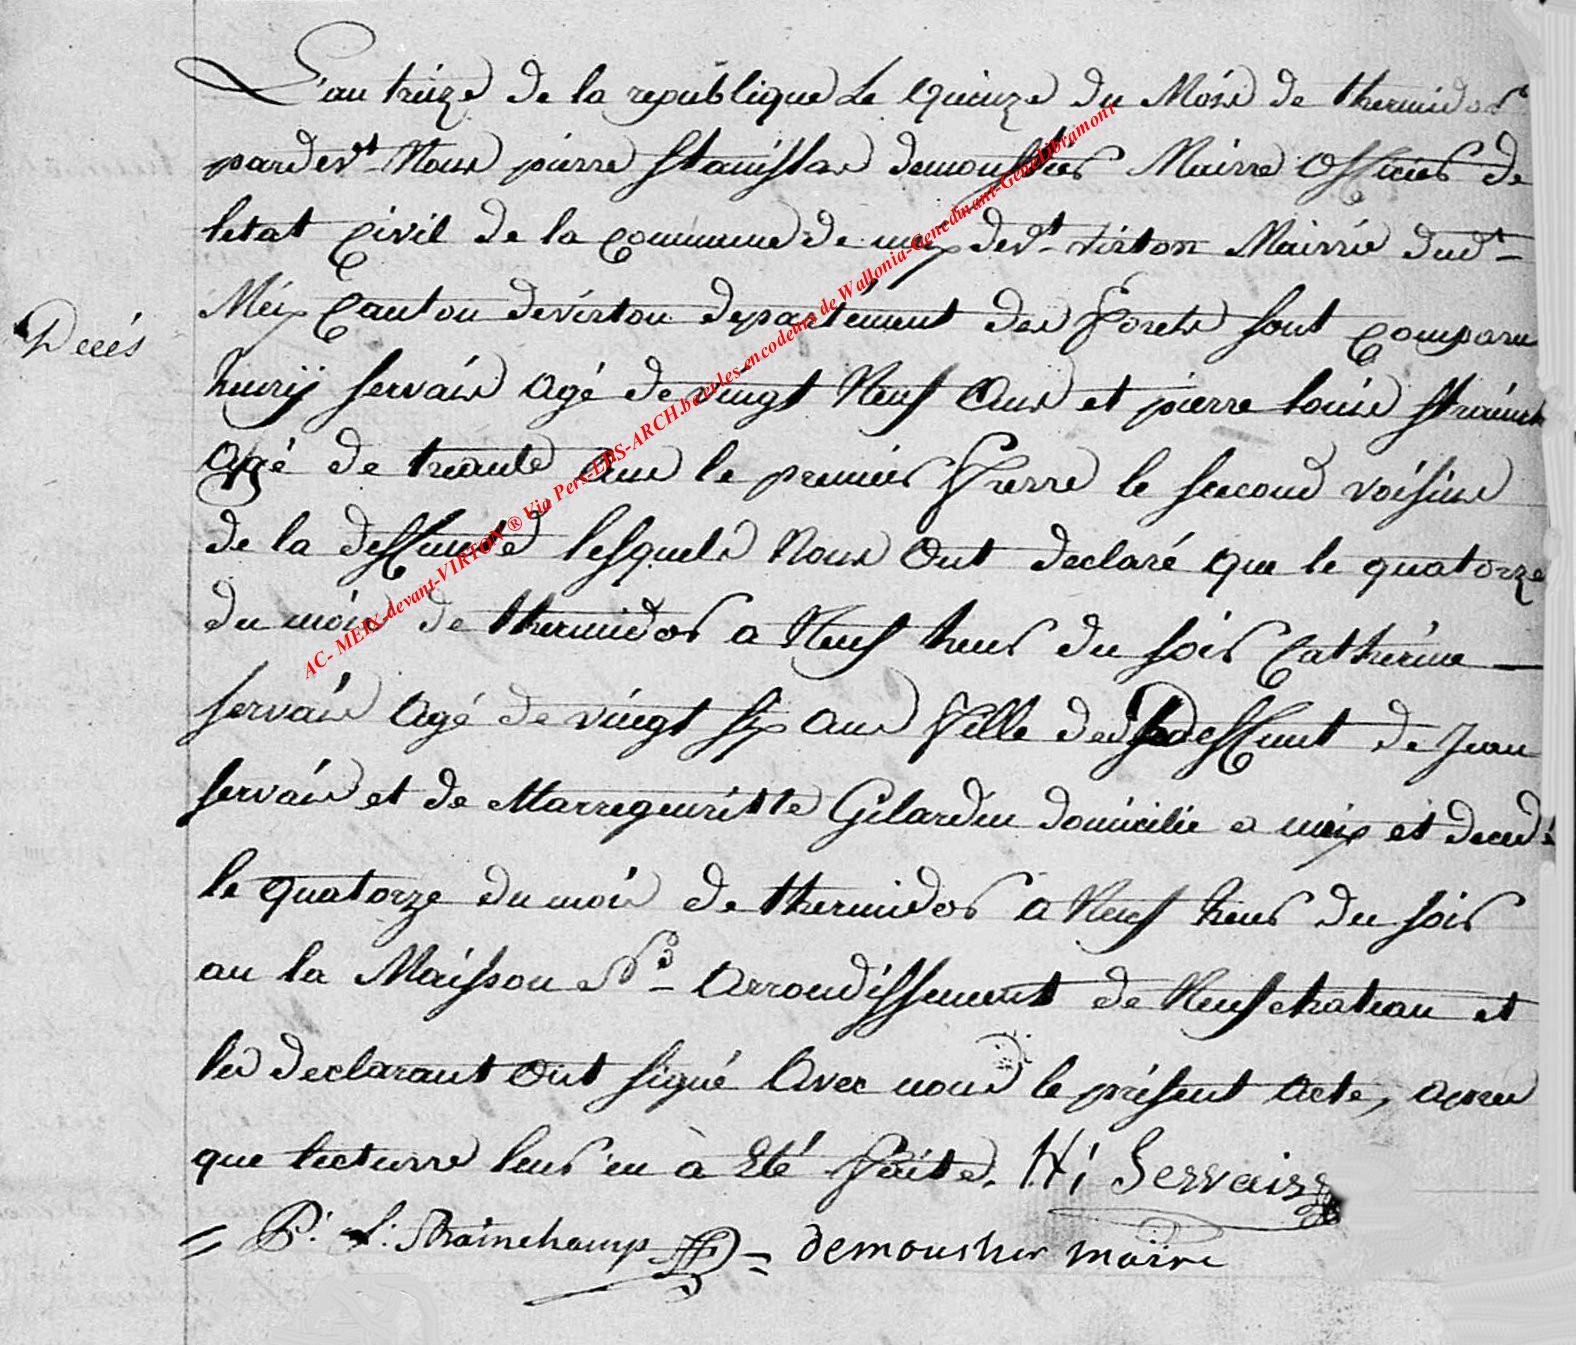 L'an treize de la republique Le Quinze du Mois de thermidor
pardevt Nous pierre Stanislas demoustier Mairre Officier de
letat Civil de la Commune de meix devt virton Mairrie dudt
Decés
Meix Canton de virton departément des Forets sont Comparu
henrÿ servais agé de vingt Neuf Ans et pierre louis strainch
Agé de trante Ans le premier Frerre le second voisins
de la deffunte lesquels Nous Ont declaré que le quatorze
du mois de thermidor a Neuf heur du soir Catherine
servais Agé de vingt six ans Fille des deffunt de Jean
servais et de Marregeuritte Gilardin domicilie a meix et deced
le quatorze du mois de thermidor a Neuf heur du soir
au la Maisson No Arrondissement de Neufchateau et
les declarant Ont signé Avec nous le présent acte, apres
que lecturre leur en à Eté Faite. Hi Servaiss
= P. L. Strainchamps = demoustier mairre
AC- MEIX-devant-VIRTON ® Via Pers-EDS-ARCH.be et les encodeurs de Wallonia-Genedinant-GeneLibramont